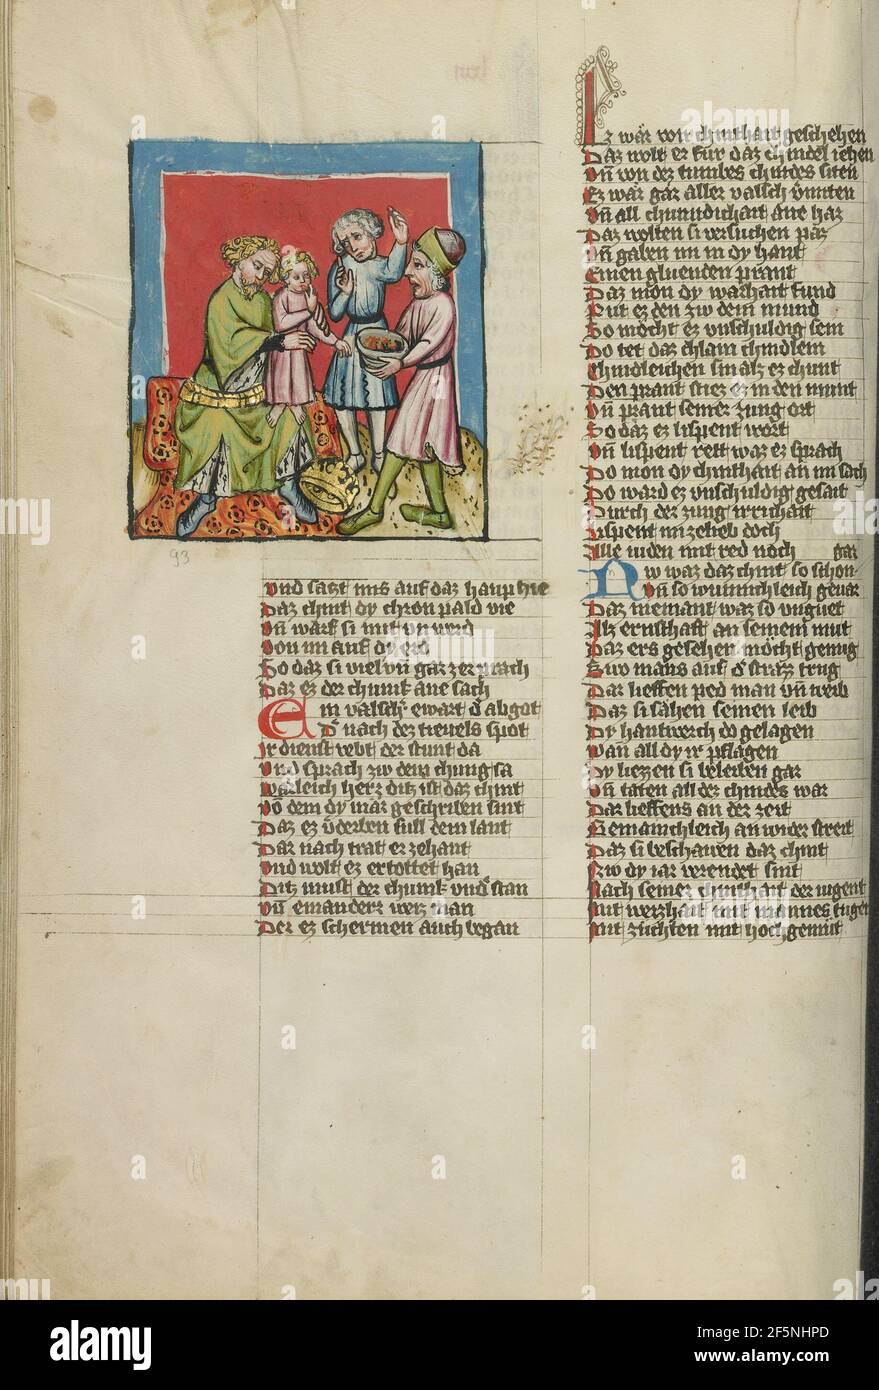 93
Vnd satzt ims auf daz haupt hie
Daz chint dy chron pald vie
Vn̄ warf si mit vnwerd
Von im auf dy erd
So daz si viel vn̄ gar zerprach
Daz ez der chunk ane sach
Ein valsch ewart d abgot
D nach dez tievels spot
Ir dienst lebt der stunt da
Vnd sprach zw dem chung sa
Warleich herz ditz ist daz chint
Vō dem dy mär geschriben sint
Daz ez v̄derben sull dem lant
Dar nach trat er zehant
Vnd wolt ez ertottet han
Ditz must der chunk vnd stan
Vn̄ ein ander weiz man
Der ez schermen auch began
Ez wär von chinthait geschehen
Daz wolt er fur daz chindel iehen
Vn̄ von dez tumbes chindes siten
Ez wär gar aller valsch v̄miten
Vn̄ all chundichait ane haz
Daz wolten si versuchen paz
Vn̄ gaben im in dy hant
Einen gluenden prant
Daz mon dy warhait fund
Put ez den zw dem mund
So mocht ez vnschuldig sein
Do tet daz chlain chindlein
Chindleichen sin alz ez chunt
Den prant stiez ez in den munt
Vn̄ prant seiner zung ort
So daz ez lispent wort
Vn̄ lispent rett waz ez sprach
Do mon dy chinthait an im sach
Do ward ez vnschuldig gesait
Durch der zung irrichait
Lispent im zeleb doch
Alle iuden mit red noch gar
Nw waz daz chint so schon
Vn̄ so wunnichleich gevar
Daz niemant waz so vnguet
Alz ernschaft an seinem mut
Daz ers gesehen mocht genug
Swo mans auf d strazz trug
Dar lieffen ped man vn̄ weib
Daz si sahen seinen leib
Dy hantwerch do gelagen
Wan all dy ir pflagen
Dy liezzen si beleiben gar
Vn̄ taten all der chindes war
Dar lieffens an der zeit
Gemainchleich an wider streit
Daz si beschawen daz chint
Zw dy iar verendet sint
Nach seiner chinthait der iugent
Mit weizhait mit mannes tugen
Mit zuchten mit hochgemut
alamy
Image ID: 2F5NHPD
www.alamy.com